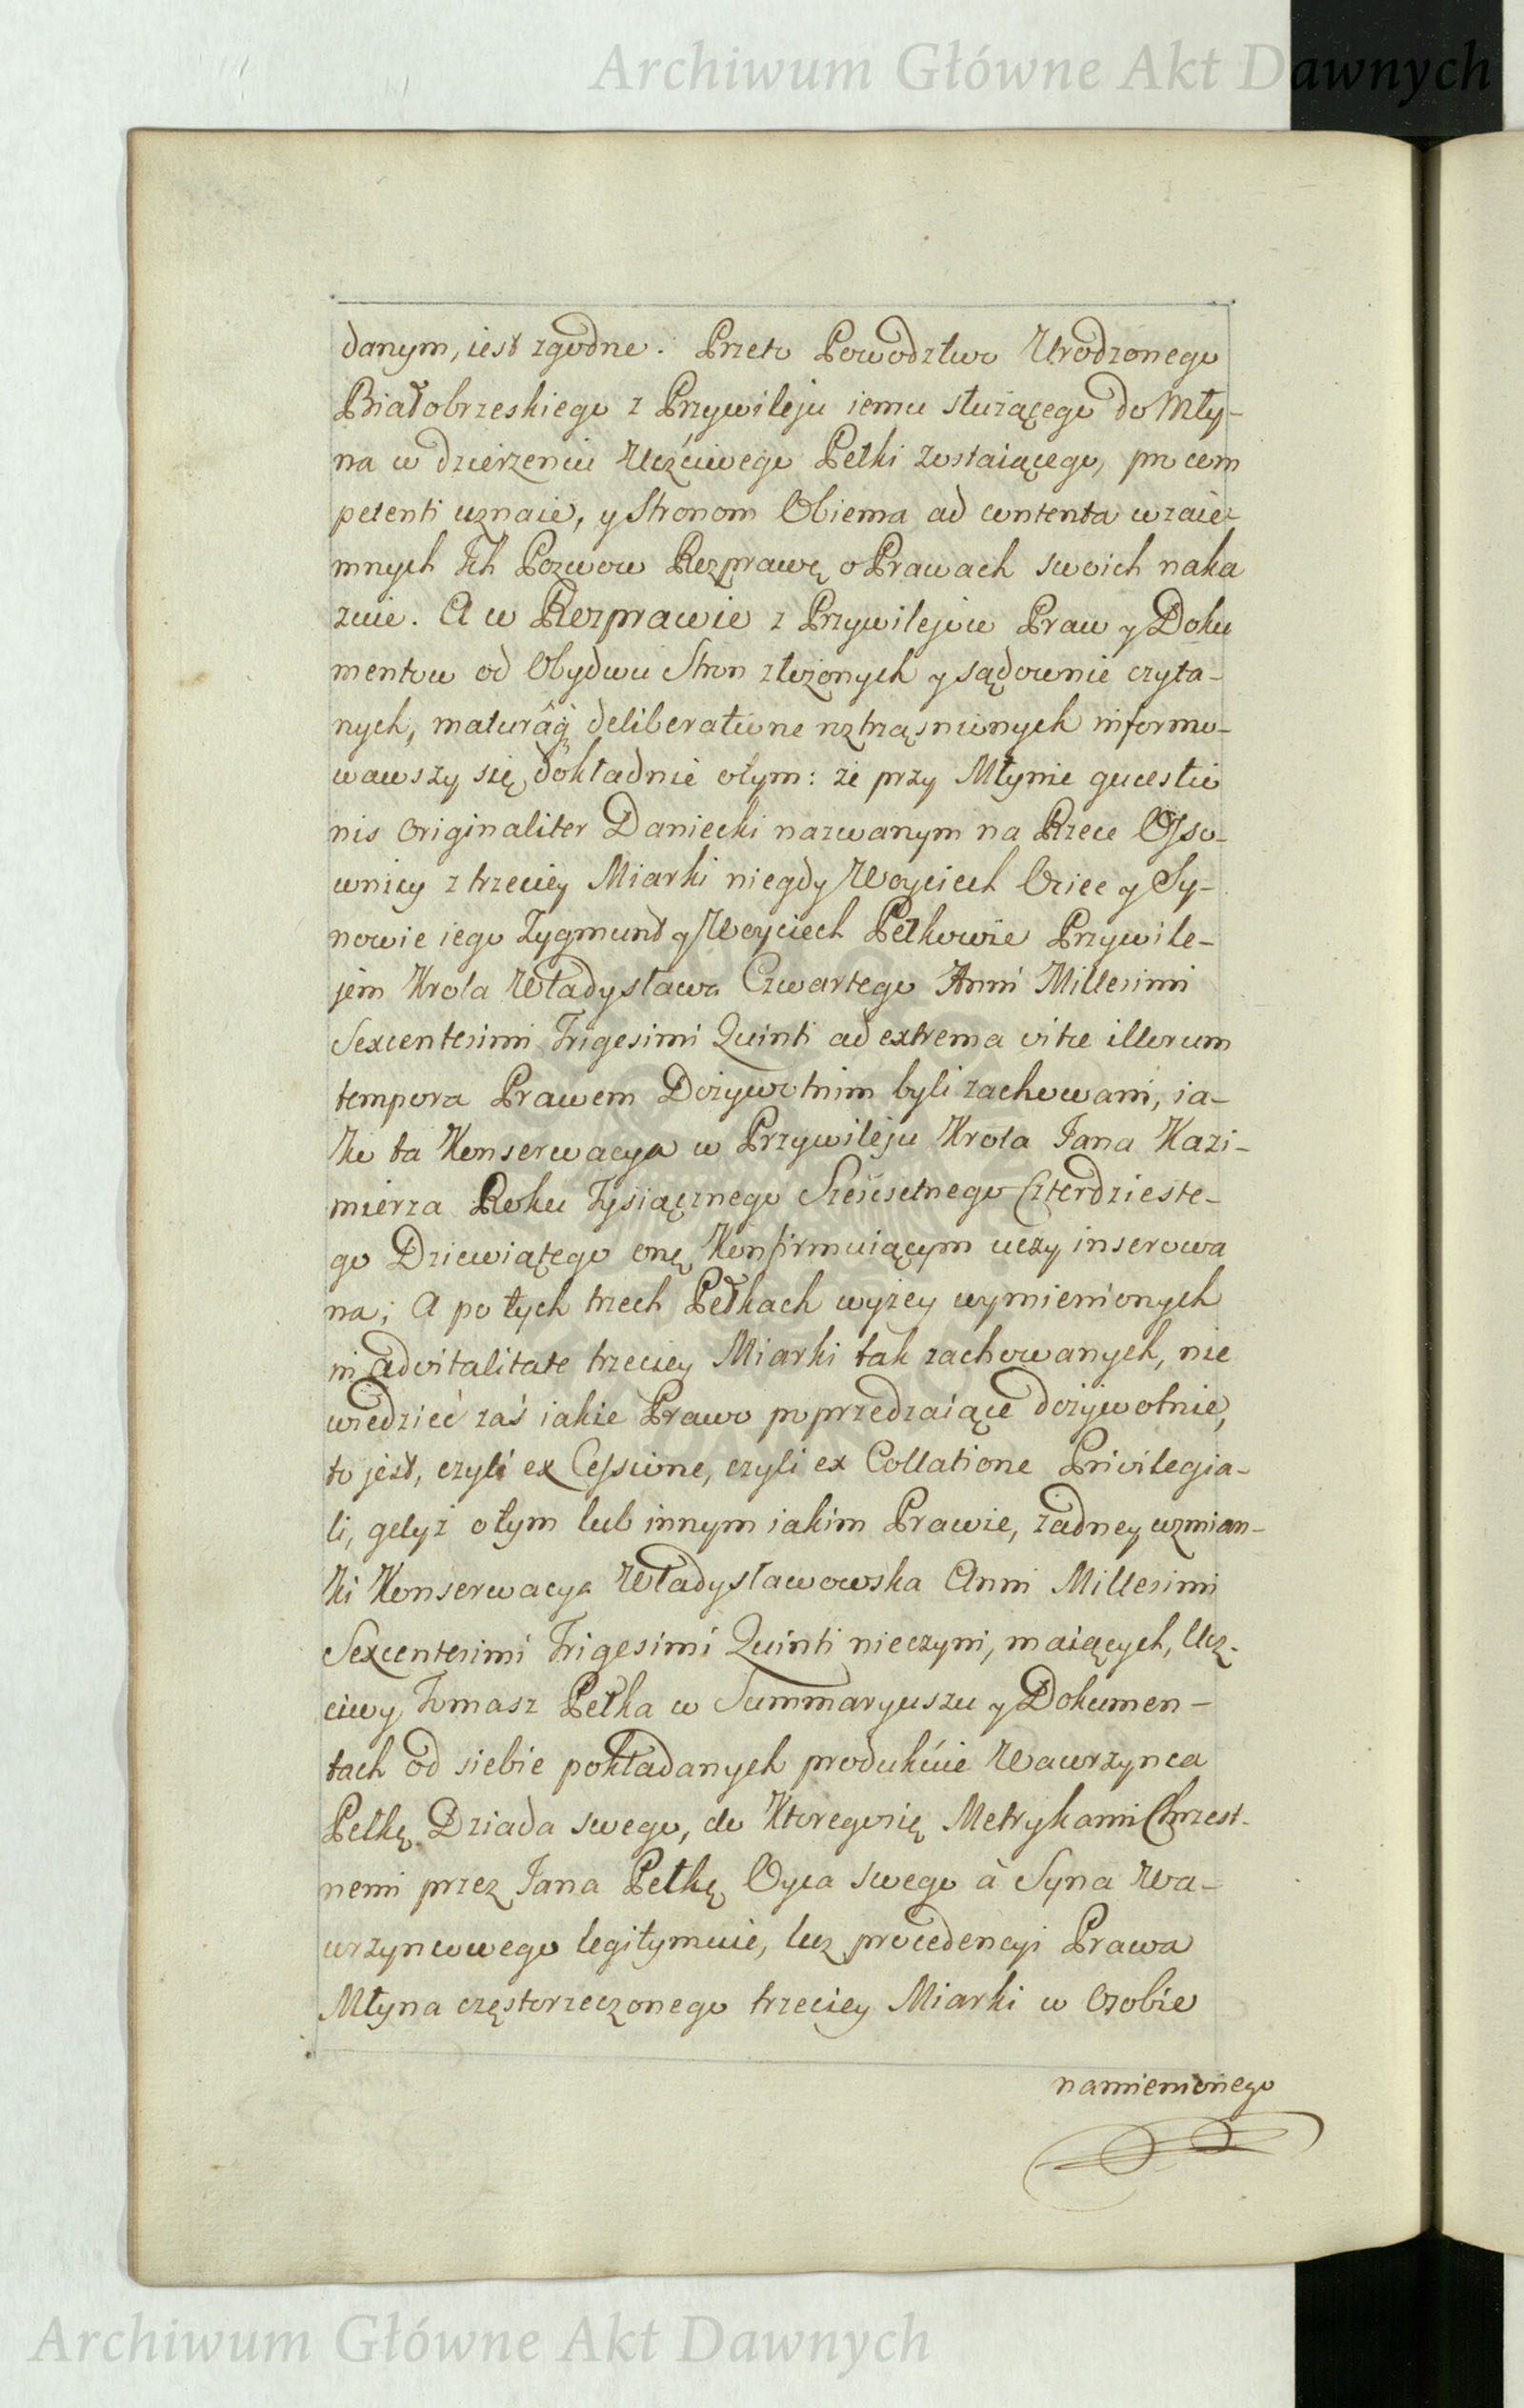 Archiwum Główne Akt Dawnych
danym, iest zgodne. Przeto Powodztwo Urodzonego
Białobrzeskiego z Przywileju iemu służącego do Mły-
na w dzierzeniu Uczciwego Pełki zostaiącego, pro com
petenti uznaie, y Stronom Obiema ad contenta wzaie-
mnych Ich Pozwow Rozprawę o Prawach swoich naka
zuie. A w Rozprawie z Przywilejow Praw y Doku
mentow od Obydwu Stron złożonych y sądownie czyta-
nych, maturâq̨ deliberatione roztrząsnionych informo-
wawszy się dokładnie otym: że przy Młynie quæstio
nis Originaliter Daniecki nazwanym na Rzece Osso-
wnicy z trzeciey Miarki niegdy Woyciech Ociec y Sy-
nowie iego Zygmunt y Woyciech Pełkowie Przywile-
jem Krola Władysława Czwartego Anni Millesimi
Sexcentesimi Trigesimi Quinti ad extrema vitæ illorum
tempora Prawem Dożywotnim byli zachowani, ia-
ko ta Konserwacya w Przywileju Krola Jana Kazi-
mierza Roku Tysiącznego Sześćsetnego Czterdzieste-
go Dziewiątego onę Konfirmuiącym uczy inserowa
na; A po tych trzech Pełkach wyżey wymienionych
in advitalitate trzeciey Miarki tak zachowanych, nie
wiedzieć zaś iakie Prawo poprzedzaiące dożywotnie,
to jest, czyli ex Cessione, czyli ex Collatione Privilegia-
li, gdyż otym lub innym iakim Prawie, żadney wzmian-
ki Konserwacya Władysławowska Anni Millesimi
Sexcentesimi Trigesimi Quinti nieczyni, maiących, Ucz-
ciwy Tomasz Pełka w Summaryuszu y Dokumen-
tach od siebie pokładanych produkuie Wawrzynca
Pełkę Dziada swego, do Ktoregosię Metrykami Chrzest-
nemi przez Jana Pełkę Oyca swego à Syna Wa-
wrzyncowego legitymuie, lecz procedencyi Prawa
Młyna częstorzeczonego trzeciey Miarki w Osobie
namienionego
Archiwum Główne Akt Dawnych